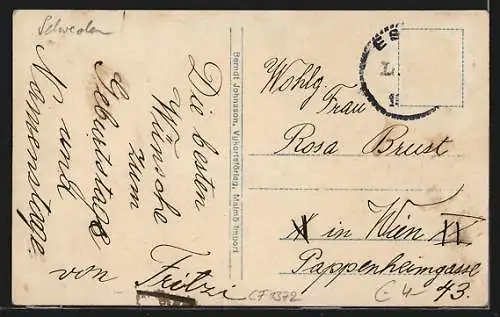 Schweden
Die besten
Wünsche
zum
Geburtstage
und
Namenstage
von Fritzi
Berndt Johnsson, Vykortsförlag, Malmö Import
Wohlg
Frau
Rosa Brust
in Wien XX
Pappenheimgasse
43.
CF1372
C 4